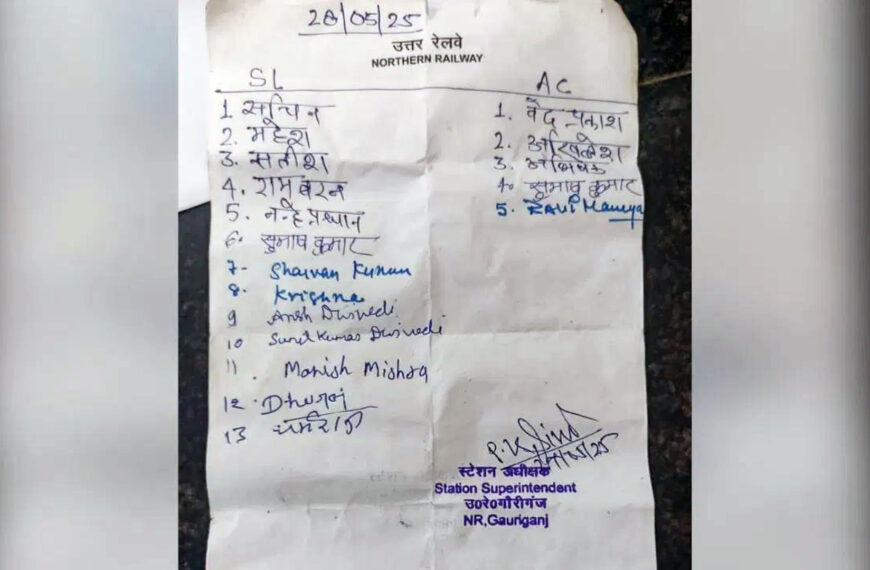 28/05/25
उत्तर रेलवे
NORTHERN RAILWAY
SL
1 सचिन
2. महेश
3. सतीश
4. राम बरन
5. नन्हे प्रधान
6. सुभाष कुमार
7- Sharvan Kumar
8. Krishna
9 Ansh Dwivedi
10 Sunil Kumar Dwivedi
11. Manish Mishra
12. Dhuranj
13 धर्मराज
AC
1. वेद प्रकाश
2. अखिलेश
3. अभिषेक
4. सुभाष कुमार
5. Ravi Maurya
स्टेशन अधीक्षक
Station Superintendent
उ०रे०गौरीगंज
NR,Gauriganj